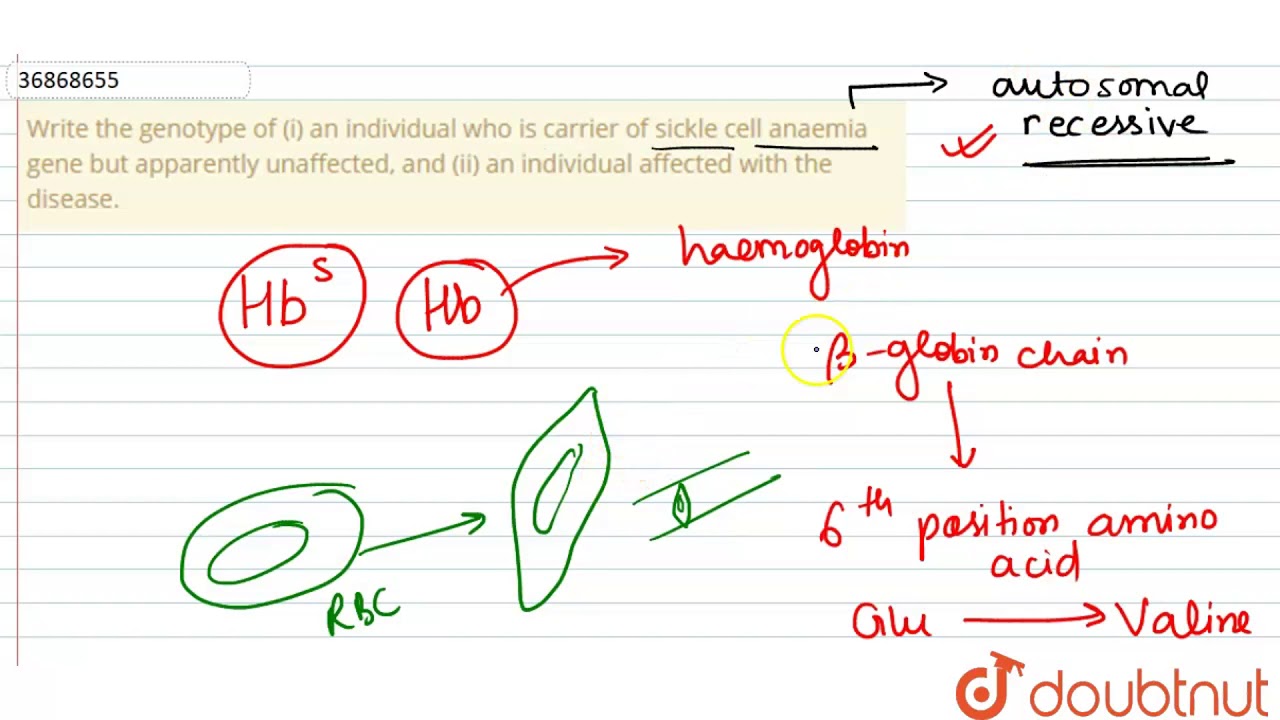 36868655
autosomal
recessive
Write the genotype of (i) an individual who is carrier of sickle cell anaemia
gene but apparently unaffected, and (ii) an individual affected with the
disease.
haemoglobin
Hb^S Hb
β-globin chain
6th position amino
acid
RBC
Glu → Valine
doubtnut